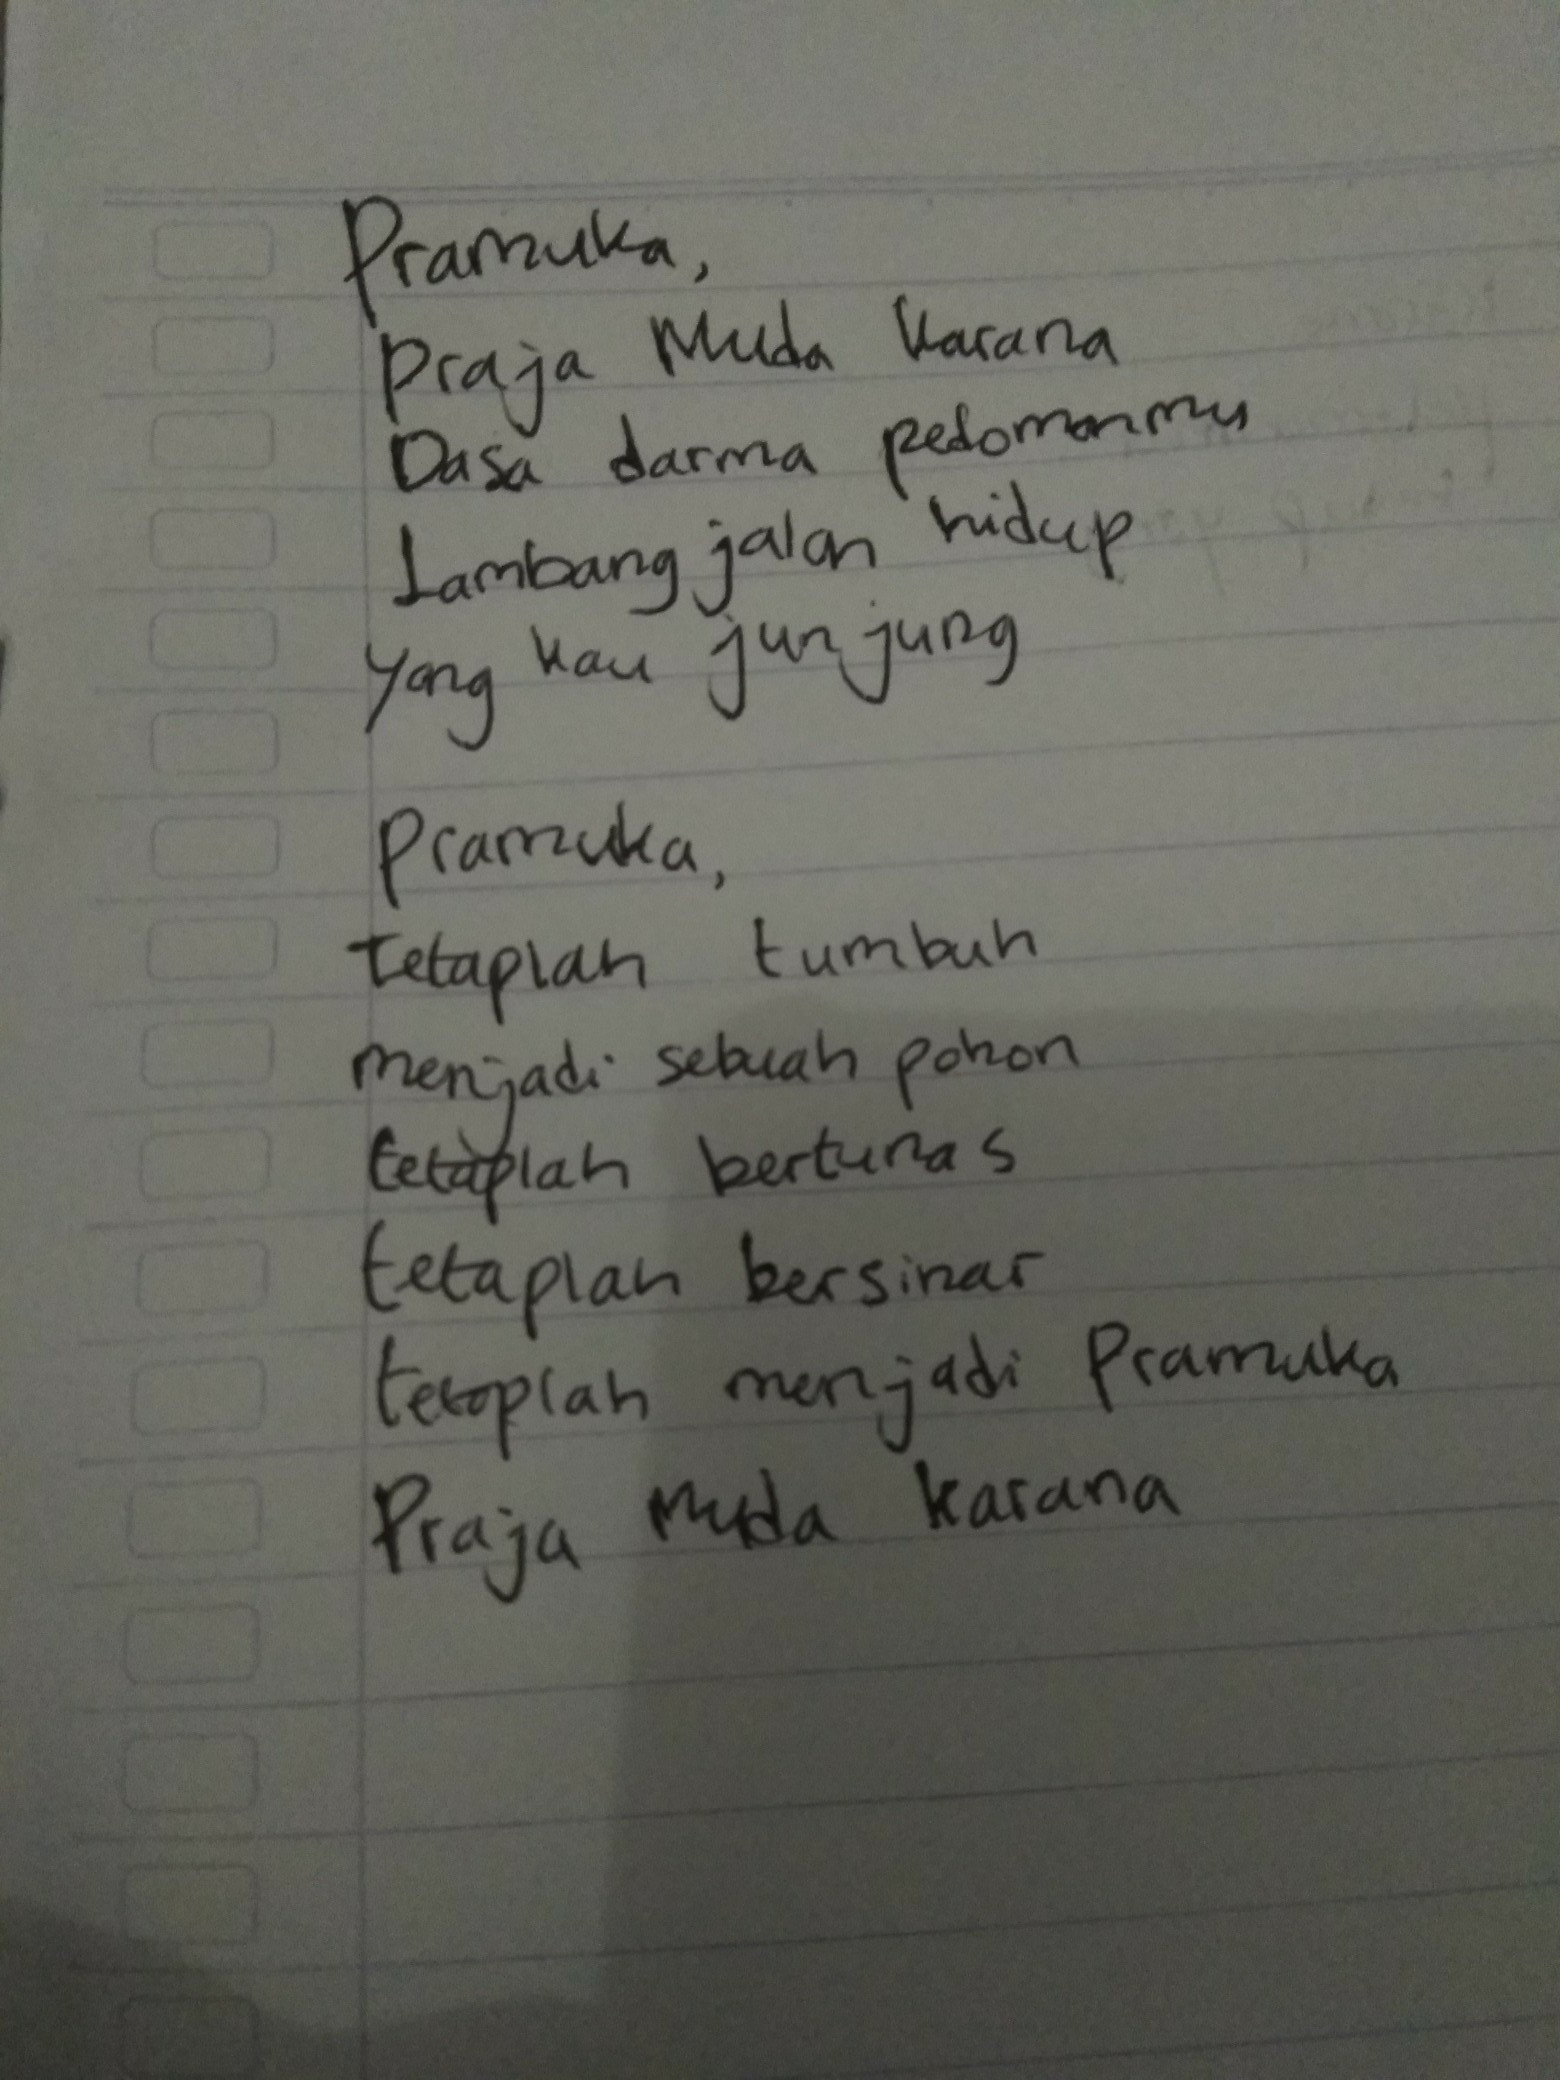 Pramuka,
Praja Muda Karana
Dasa darma pedomanmu
Lambang jalan hidup
yang kau junjung
Pramuka,
tetaplah tumbuh
menjadi sebuah pohon
tetaplah bertunas
tetaplah bersinar
tetaplah menjadi Pramuka
Praja Muda Karana